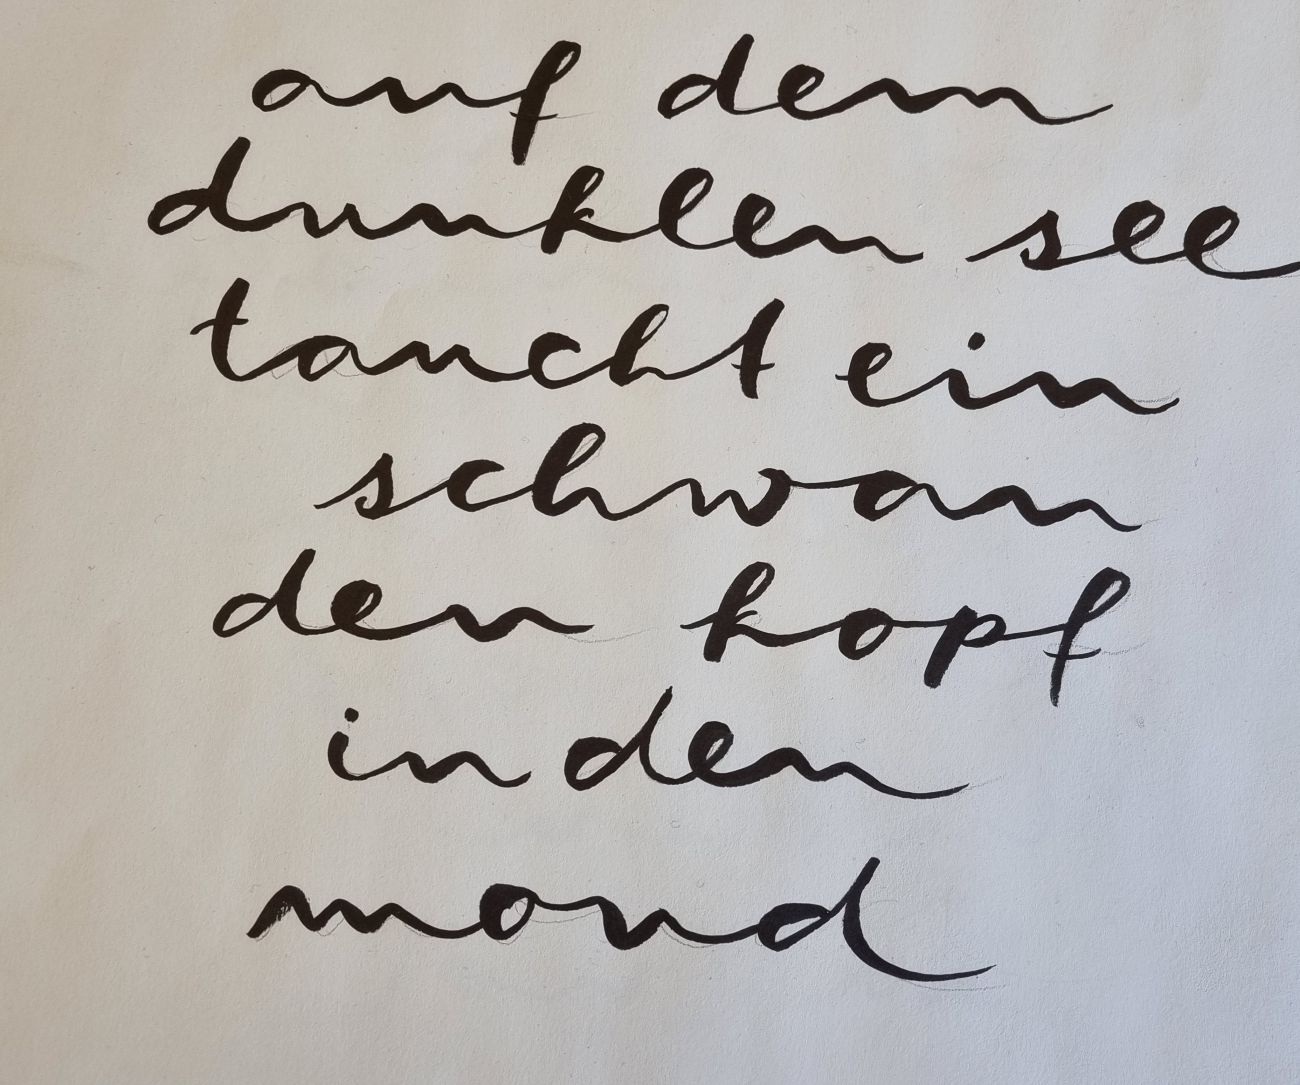 auf dem
dunklen see
taucht ein
schwan
den kopf
in den
mond